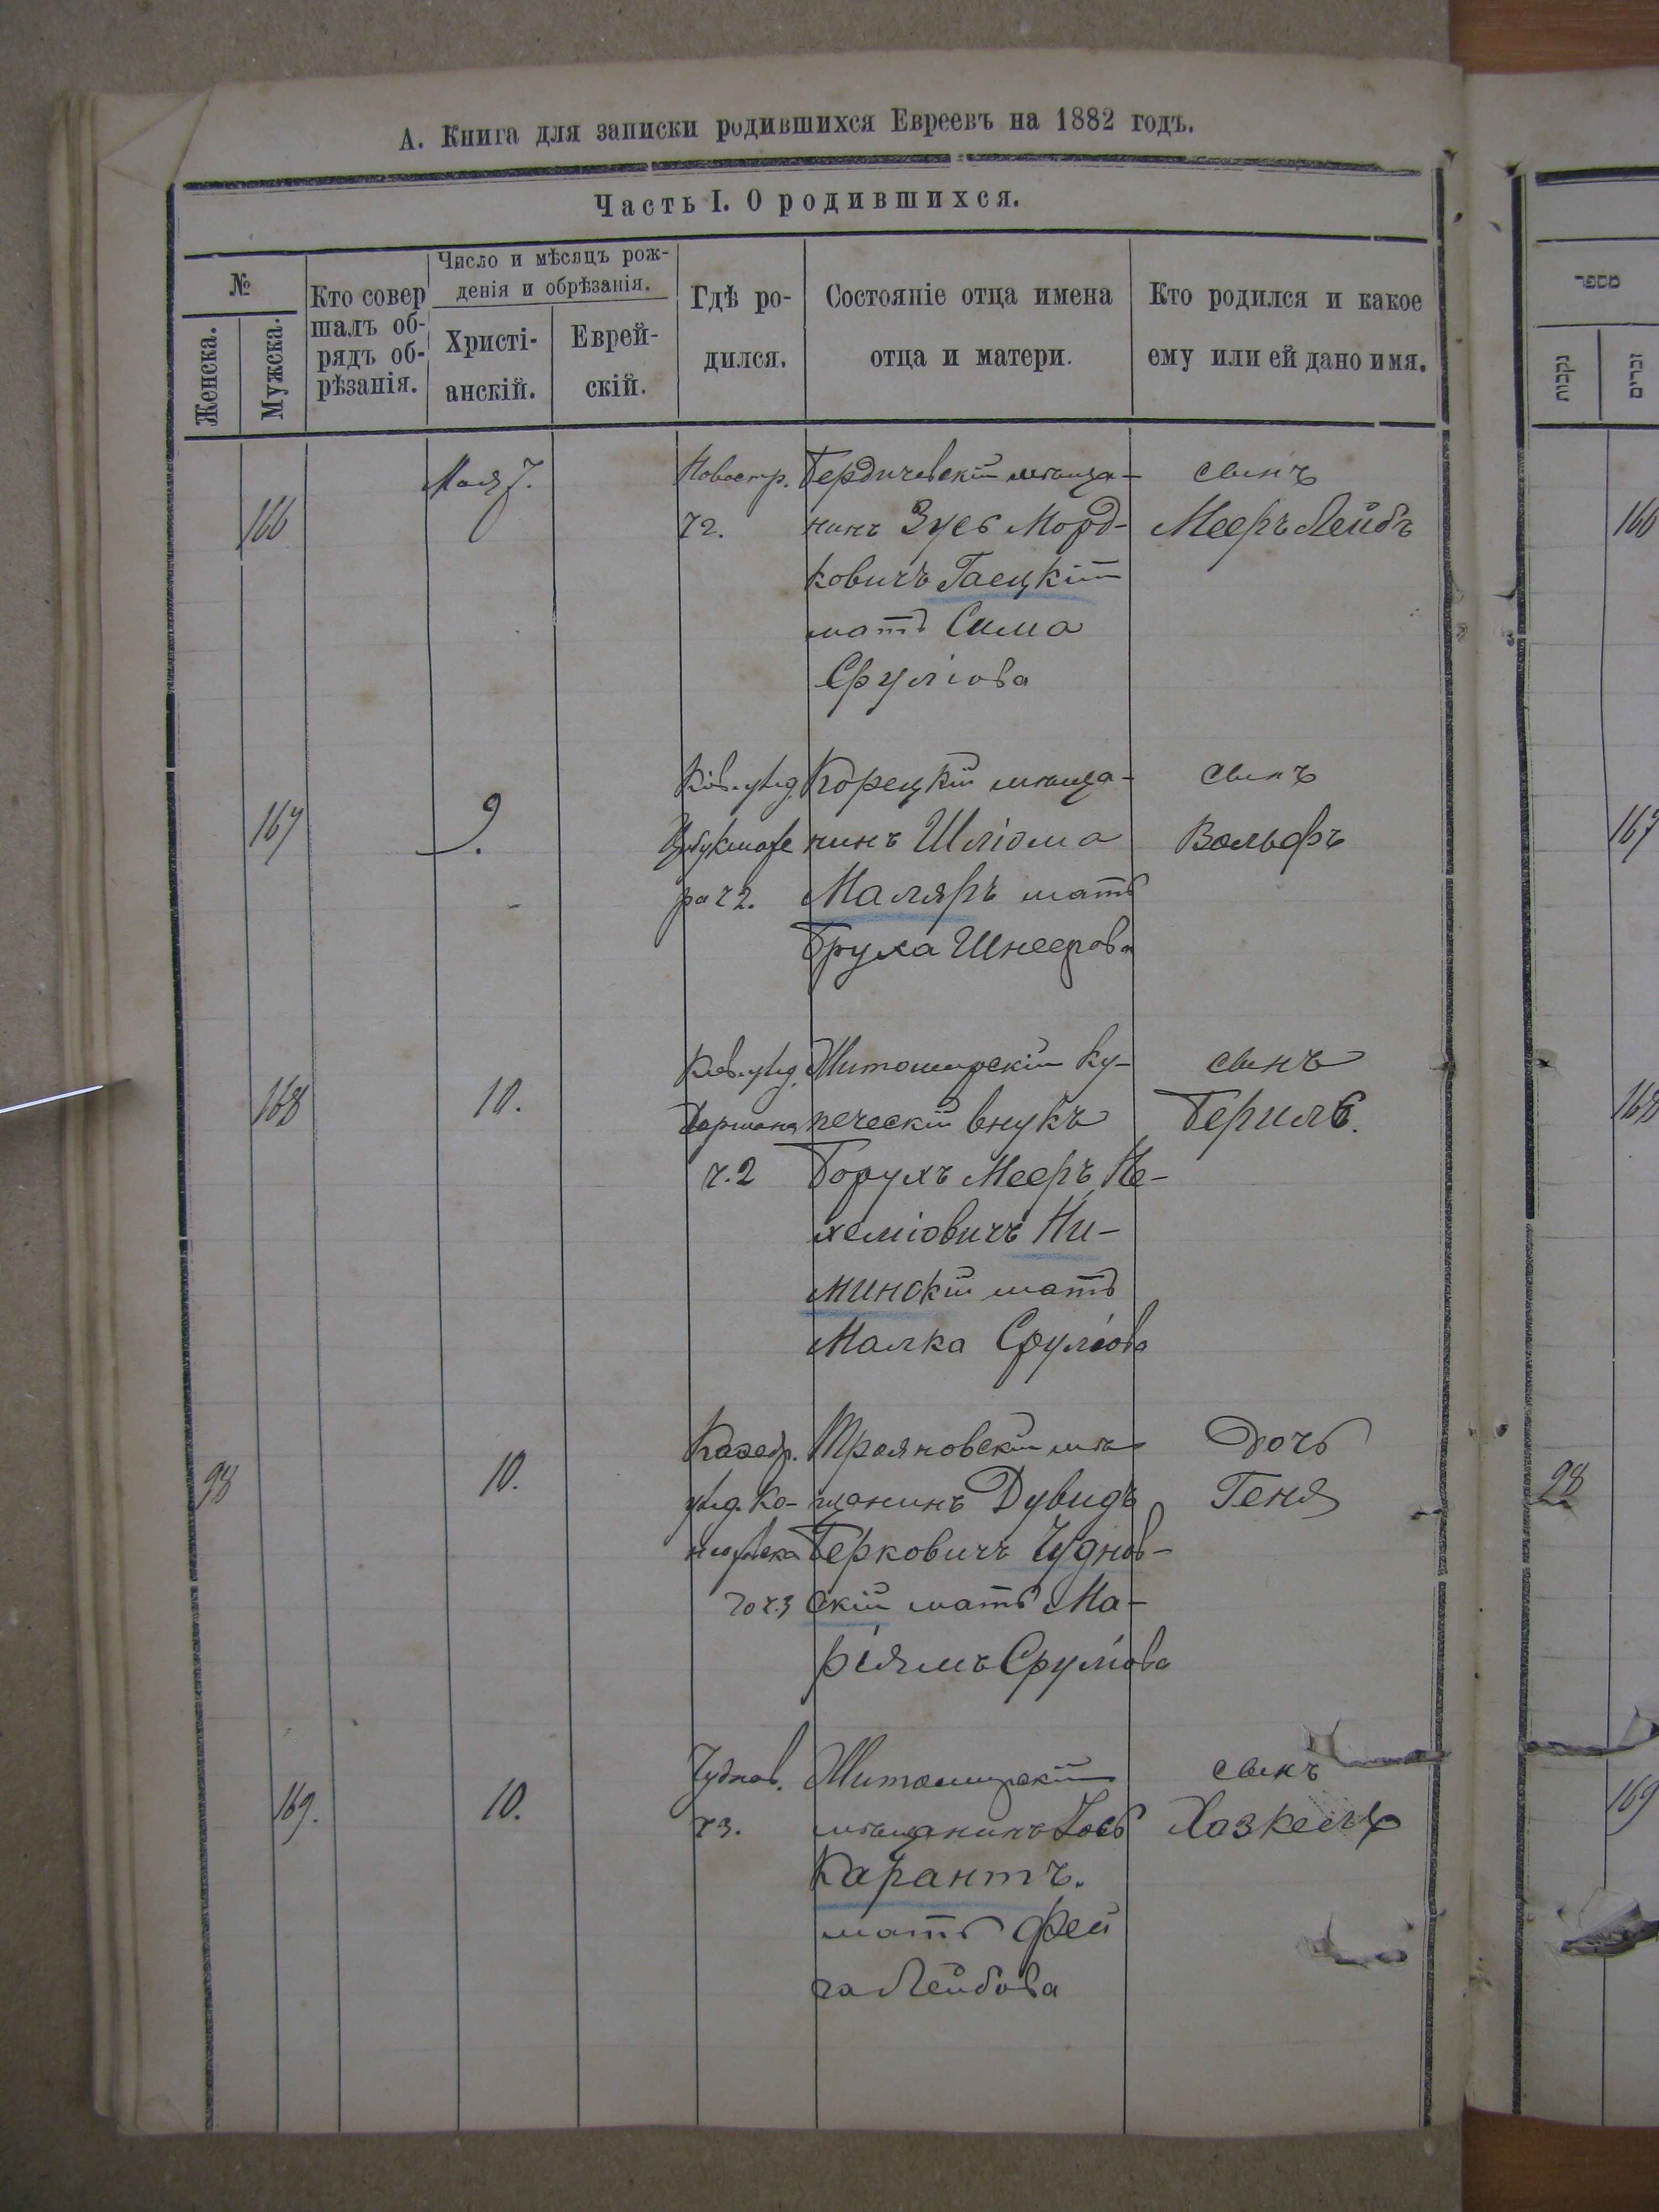 А. Книга для записки родившихся Евреевъ на 1882 годъ.
Часть I. О родившихся.
№
Женска.
Мужска.
Кто совер
шалъ об-
рядъ об-
рѣзанія.
Число и мѣсяцъ рож-
денія и обрѣзанія.
Христі-
анскій.
Еврей-
скій.
Гдѣ ро-
дился.
Состояніе отца имена
отца и матери.
Кто родился и какое
ему или ей дано имя.
מספר
נקבות
זכרים
166
Мая 7.
Новостр.
ч2.
Бердичевскій мѣща-
нинъ Зусь Морд-
ковичъ Гаецкій
мать Сима
Сруліова
сынъ
Мееръ Лейбъ
166
167
9.
Кіев. улд.
ра ч2.
Корецкій мѣща-
нинъ Шліома
Маляръ мать
Бруха Шнеерова
сынъ
Вольфъ
167
168
10.
ч.2
Житомирскій ку-
печескій внукъ
Борухъ Мееръ Не-
хеміовичъ Ни-
минскій мать
Малка Сруліова
сынъ
Бериль.
168
98
10.
Кафедр.
го ч.3
Трояновскій мѣ
щанинъ Дувидъ
Берковичъ Чуднов-
скій мать Ма-
ріямъ Сруліова
Дочь
Геня
98
169.
10.
Чуднов.
ч3.
Житомирскій
мѣщанинъ Іось
Карантъ.
мать Фей
га Лейбова
сынъ
Хазкель
169